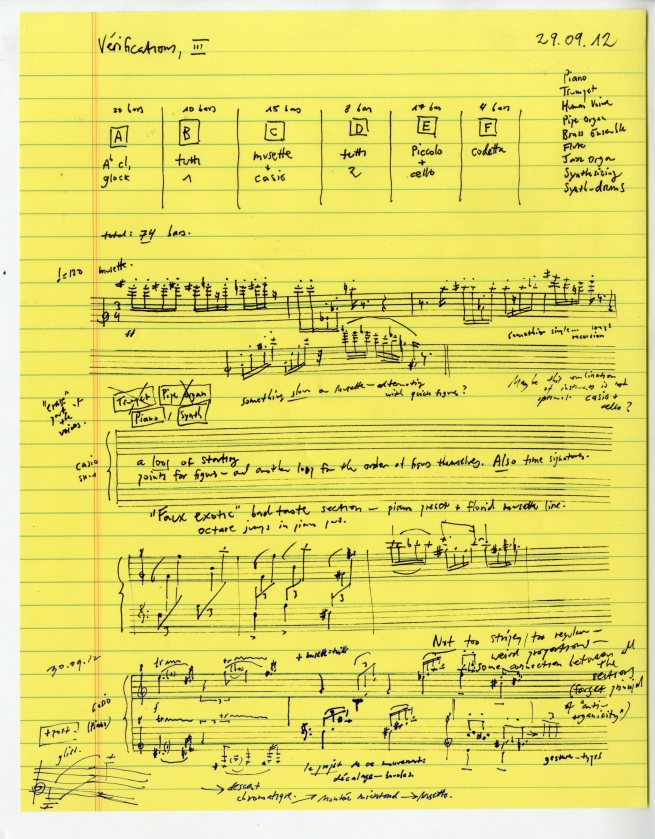 Vérifications, III
29.09.12
Piano
Trumpet
Human Voice
Pipe Organ
Brass Ensemble
Flute
Jazz Organ
Synth-drums
20 bars 10 bars 15 bars 8 bars 17 bars 4 bars
A B C D E F
Ab cl, tutti musette tutti Piccolo codetta
glock 1 + 2 +
casio cello
total: 74 bars.
♩=120 musette.
3
4
ff
something simple
"erase"
part of
the
voices.
Trumpet Pipe Organ
Piano Synth
something slow on musette - alternating
with quick figures?
Maybe this
of instruments is not
casio +
cello?
casio
a loop of starting
points for figures - and another loop for the order of figures themselves. Also time signatures.
"Faux exotic" bad taste section - piano preset + florid musette line.
octave jumps in piano
3 3 3
30.09.12
Not too stripey/too regular -
weird proportions -
some connection between all
the
sections
(forget principle
of "anti-
organicity".)
casio
(Piano)
+ port.
gliss.
f
le projet de ce mouvement:
décalage - boucles.
gesture-types
→ descent
chromatique. → → musette.